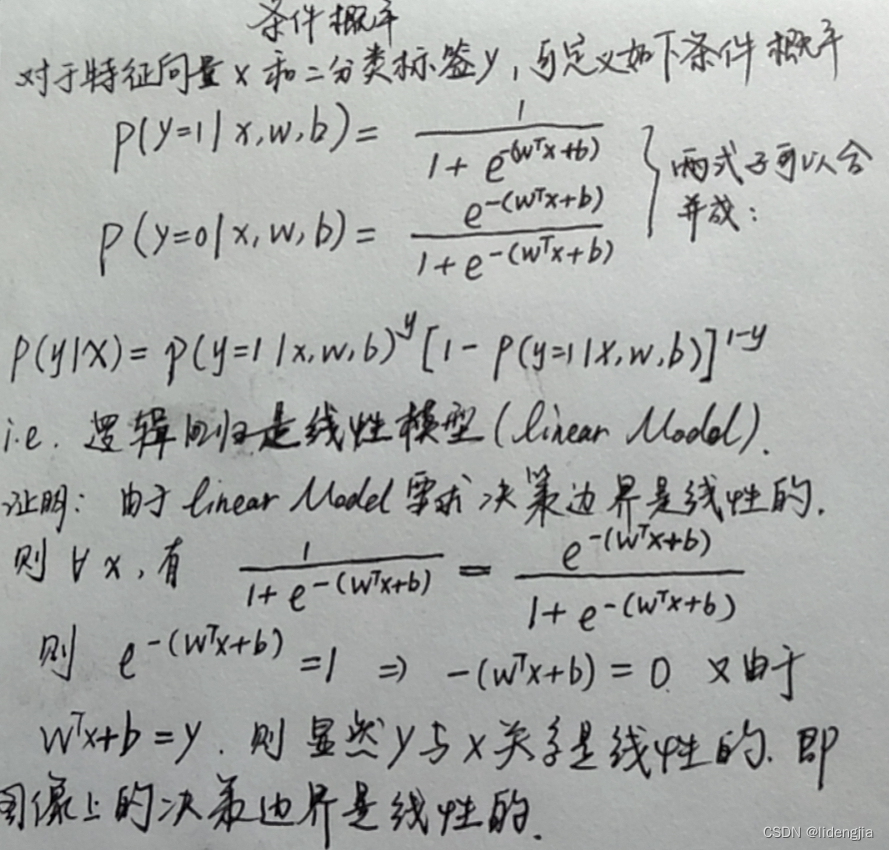 条件概率
对于特征向量 x 和二分类标签y, 可定义如下条件概率
P(y=1|x,w,b) = 1 / (1 + e^{-(wᵀx+b)})
P(y=0|x,w,b) = e^{-(wᵀx+b)} / (1 + e^{-(wᵀx+b)})
} 两式子可以合
并成:
P(y|x) = P(y=1|x,w,b)^y [1 - P(y=1|x,w,b)]^{1-y}
i.e. 逻辑回归是线性模型(linear Model).
证明: 由于 linear Model 需求决策边界是线性的.
则 ∀ x, 有 1 / (1 + e^{-(wᵀx+b)}) = e^{-(wᵀx+b)} / (1 + e^{-(wᵀx+b)})
则 e^{-(wᵀx+b)} = 1 ⇒ -(wᵀx+b) = 0. 又由于
wᵀx+b = y. 则显然 y 与 x 关系是线性的. 即
图像上的决策边界是线性的.
CSDN @lidengjia